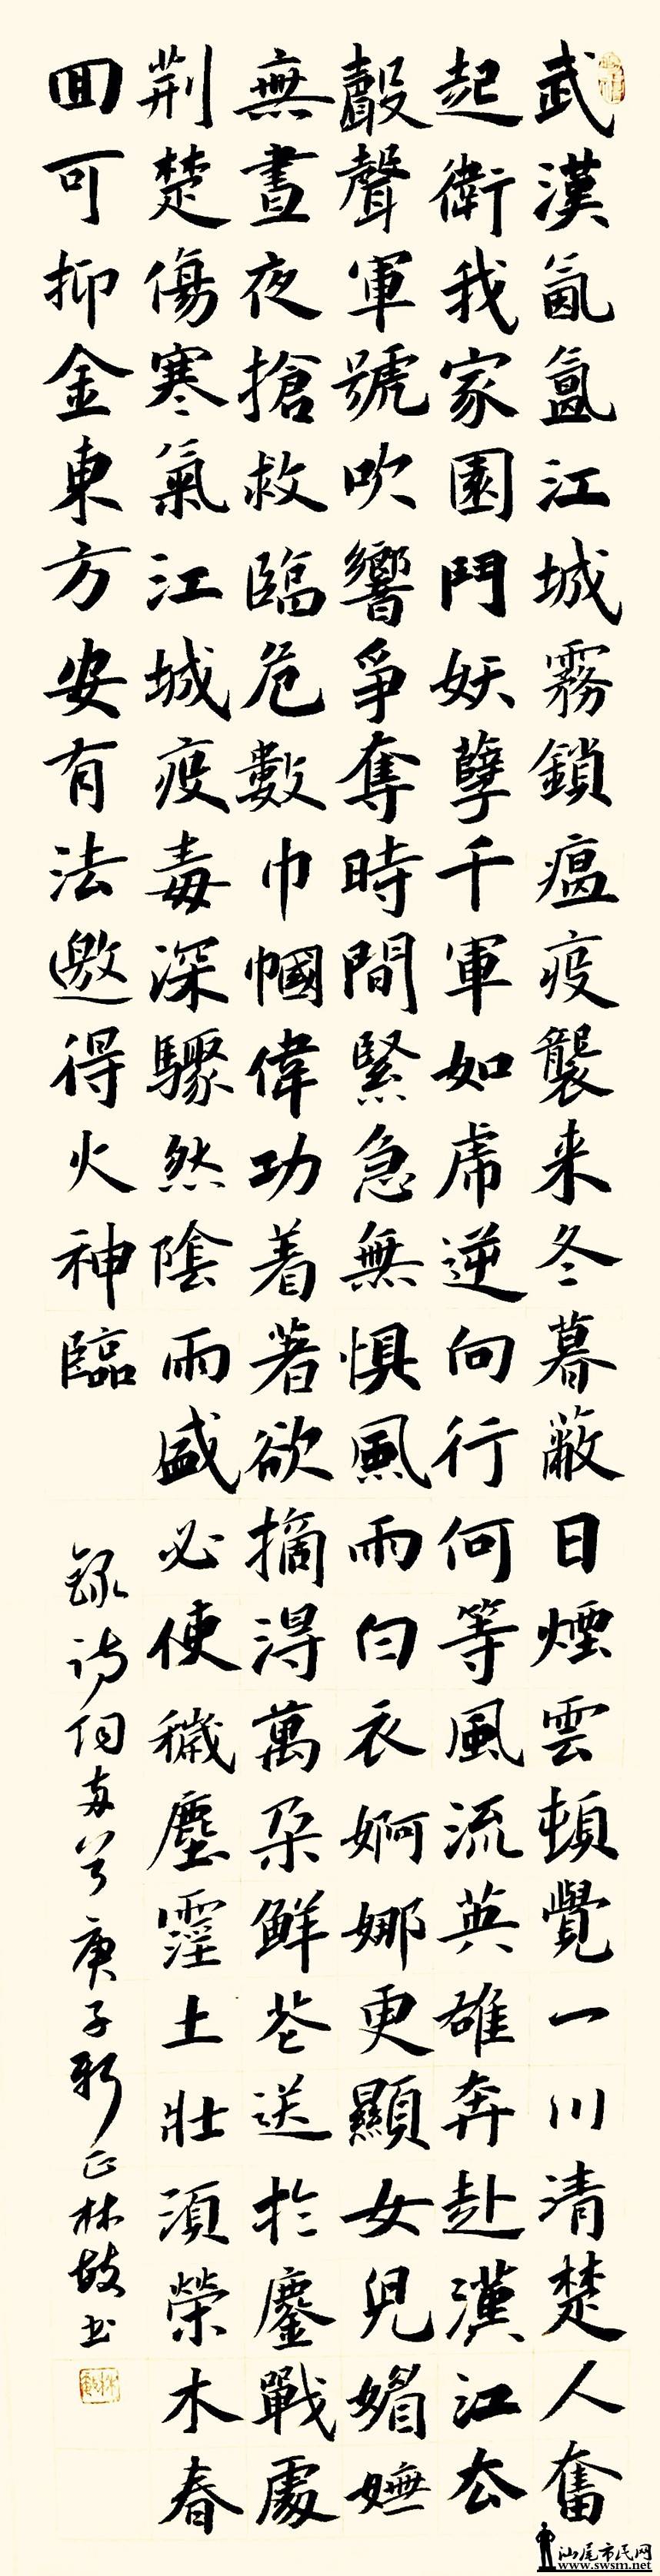 武漢氤氳江城霧鎖瘟疫襲来冬暮蔽日煙雲頓覺一川清楚人奮
起衛我家園鬥妖孽千軍如虎逆向行何等風流英雄奔赴漢江厺
鼔聲軍號吹響爭奪時間緊急無惧風雨白衣婀娜更顯女兒媚嫵
無晝夜搶救臨危數巾幗偉功着著欲摘得萬朵鮮花送於鏖戰處
荆楚傷寒氣江城疫毒深驟然陰雨盛必使穢塵霪土壯須榮木春
囬可抑金東方安有法邀得火神臨
錄詩詞两首庚子新正林书
汕尾市民网
www.swsm.net